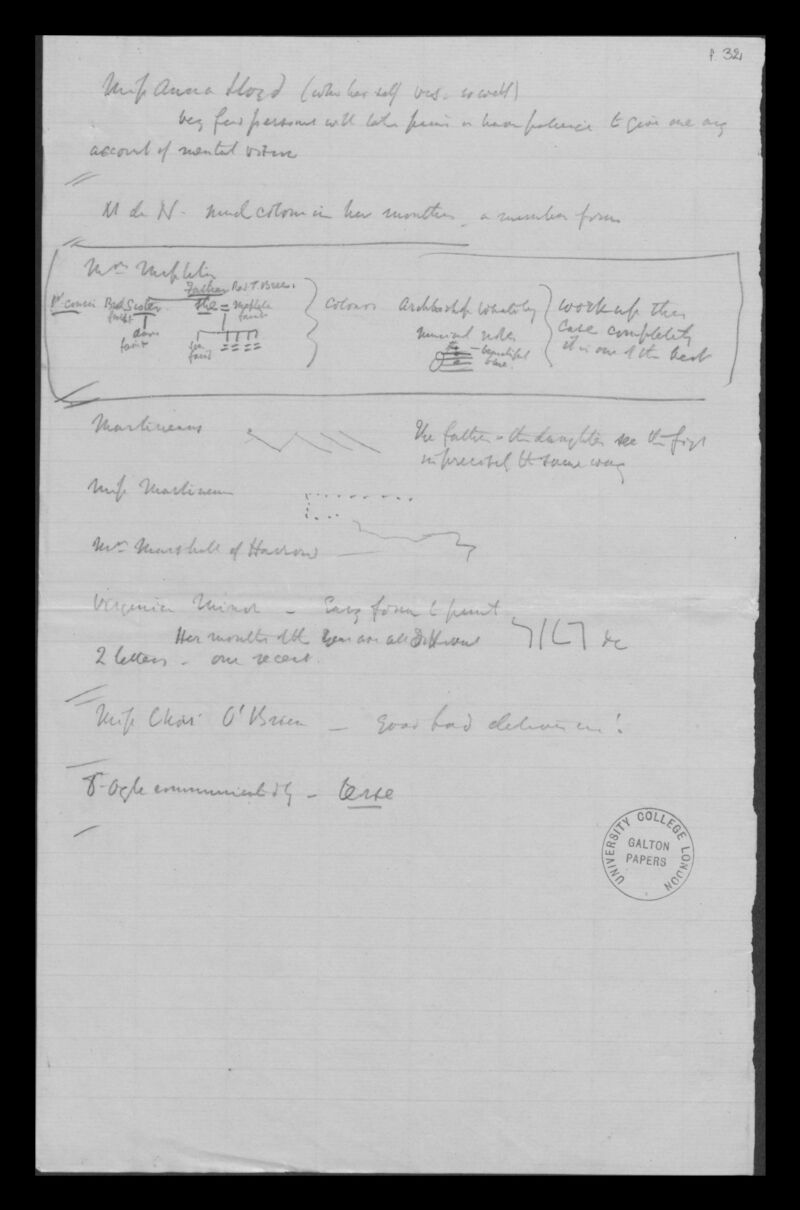 p. 32
Miss Anna Lloyd (who herself vis. so well)
very few persons will take pains or have patience to give one any
account of mental vision
M de N - months, a number form
Mrs
Father Rev T.
1st cousin Sister she =
faint faint
daur
faint faint
colours Archbishop Whately work up this
musical notes case completely
beautiful it is one of the best
blue
Martineaus The father & the daughter see the figs
in precisely the same way
Miss Martineau
Mrs Marshall of Harrow
Virginia Minor - Easy form to print
Her months of the year are all different &c
2 letters - one recent.
Miss Char. O'Brien - good bad !
Ogle -
UNIVERSITY COLLEGE LONDON
GALTON
PAPERS